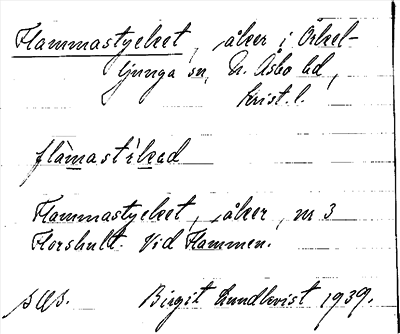 Flammastycket, åker i Örkel-
ljunga sn, N. Åsbo hd,
Krist. l.
flàmastìkad
Flammastycket, åker, nr 3
Florshult. Vid Flammen.
Birgit Lundkvist 1939.